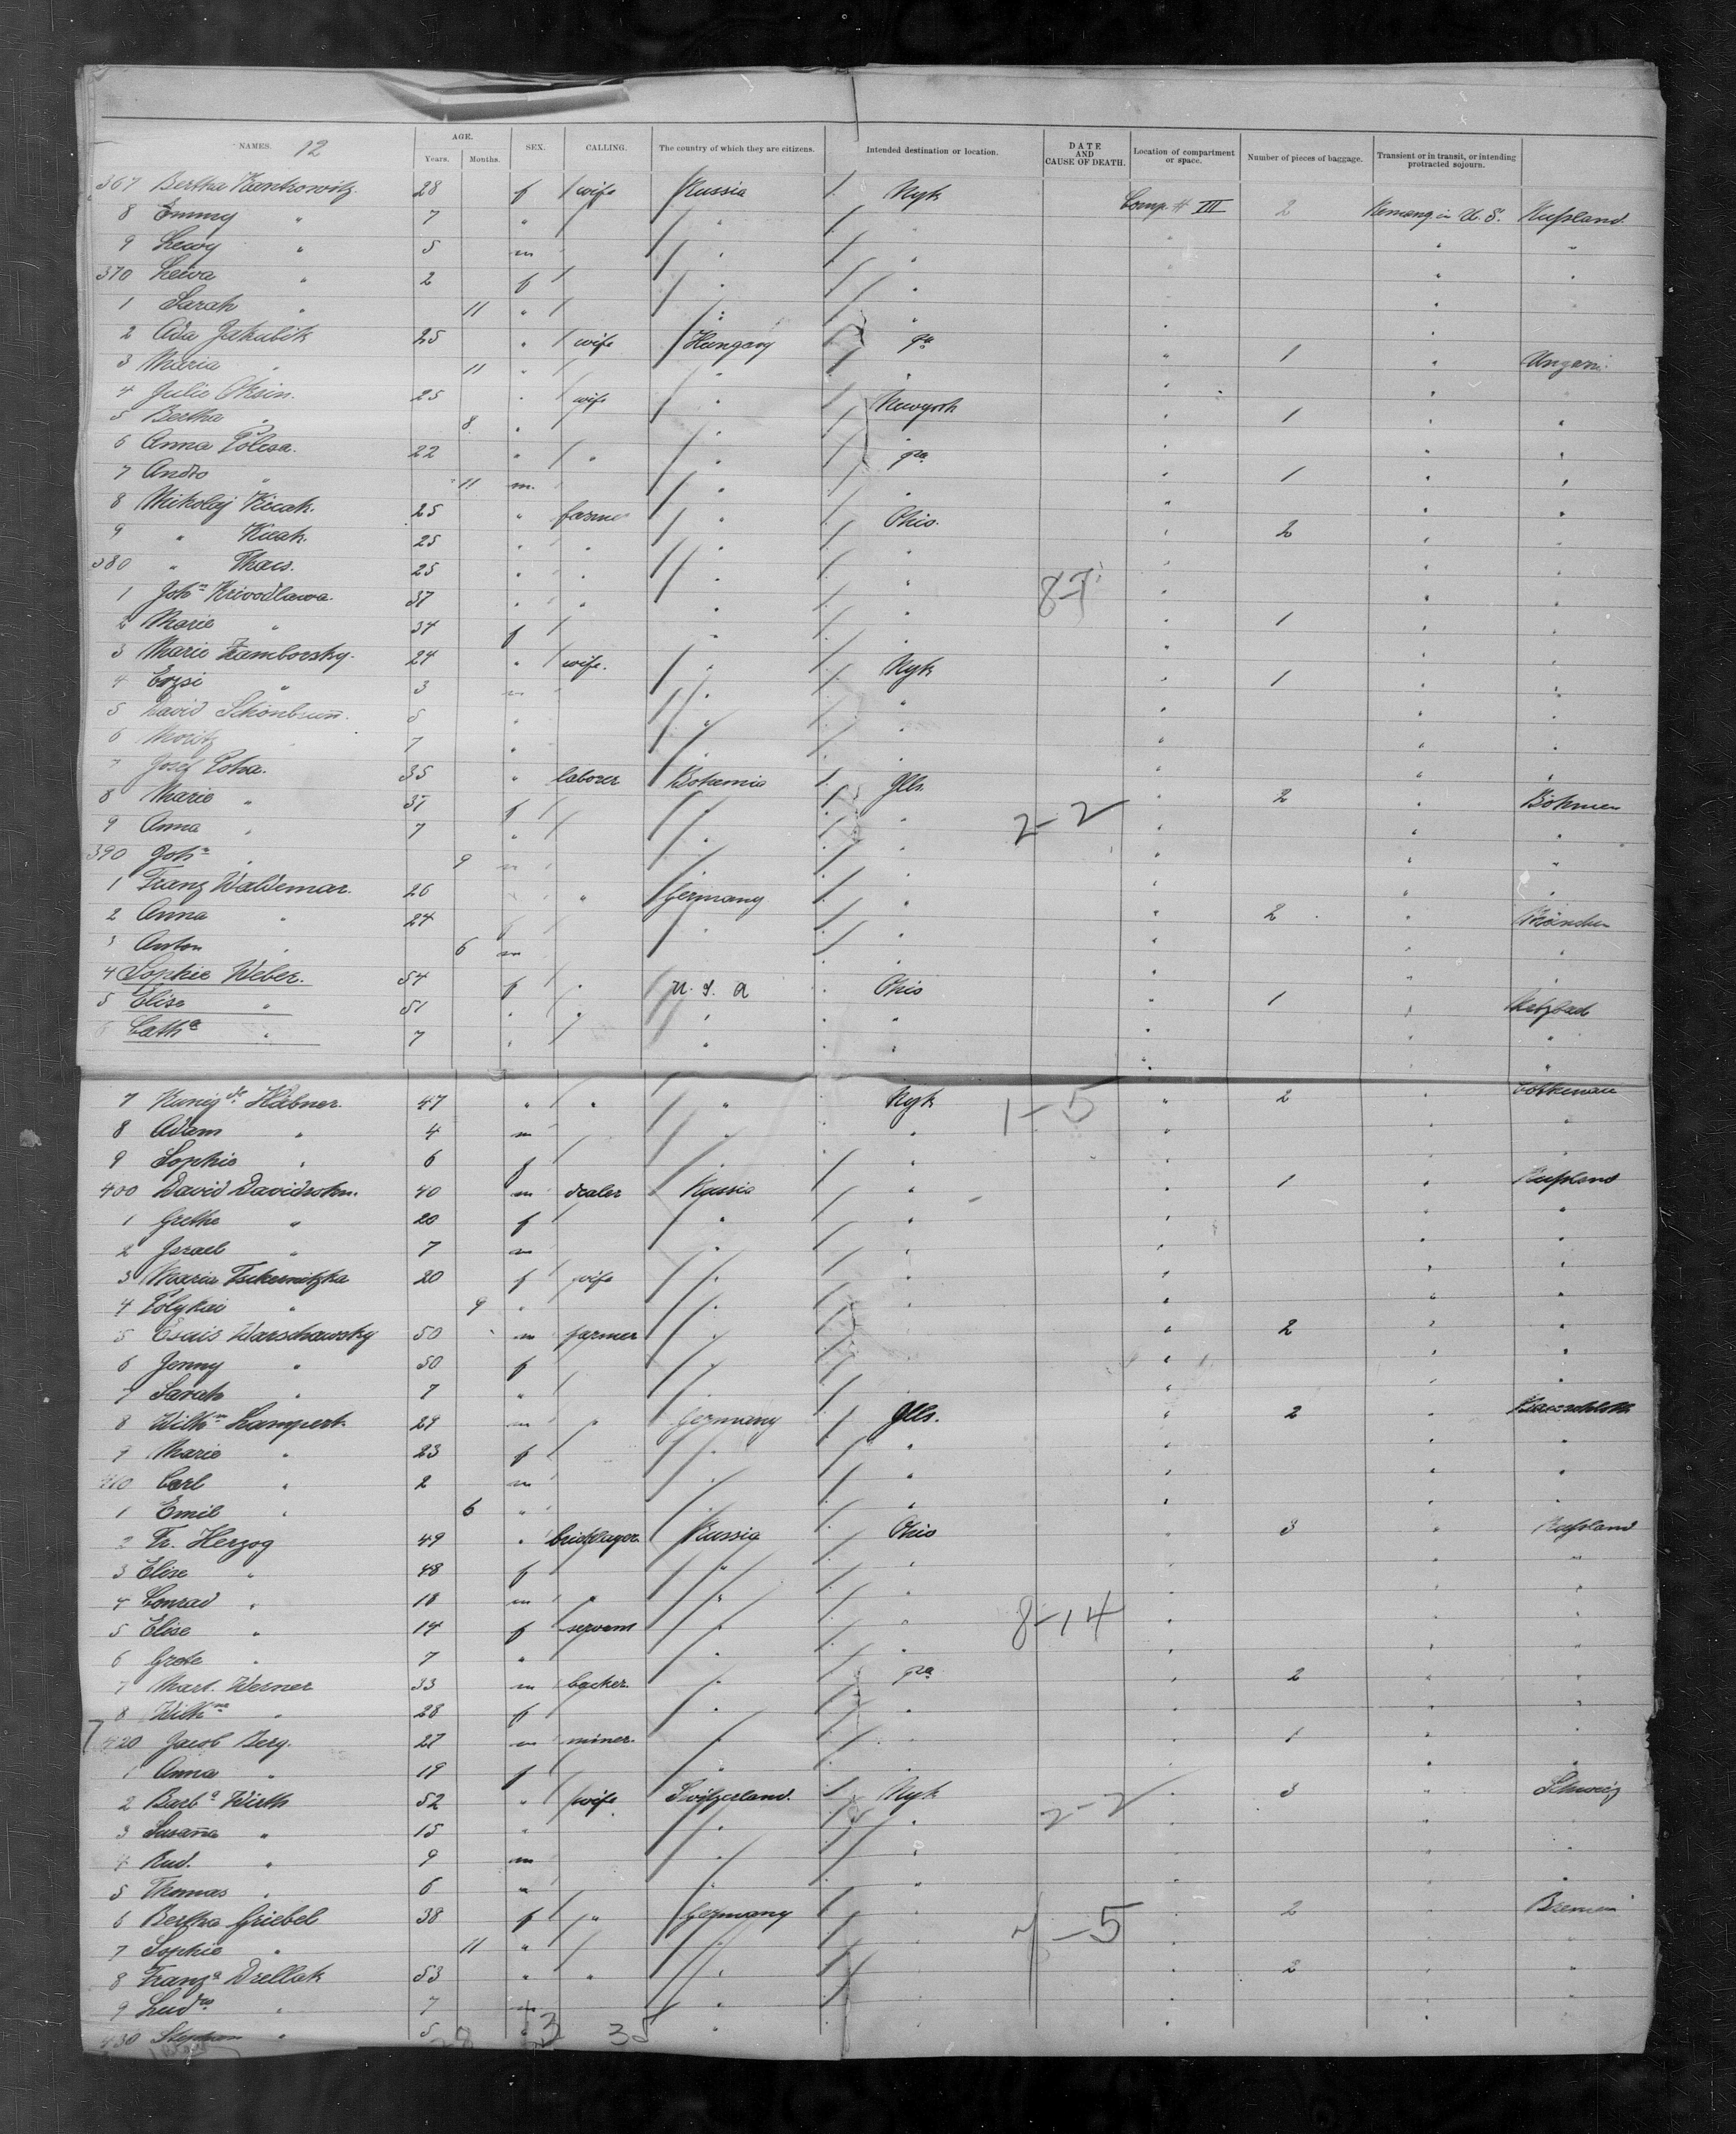 NAMES. 12 AGE. Years. Months. SEX. CALLING. The country of which they are citizens. Intended destination or location. DATE AND CAUSE OF DEATH. Location of compartment or space. Number of pieces of baggage. Transient or in transit, or intending protracted sojourn.
367 Bertha Kantrowitz 28 f wife Russia Nyk Comp. # III 2 Remang. in U. S. Rußland
8 Emmy " 7 "
9 Lewy " 5 m
370 Leiva " 2 f
1 Sarah " 11 "
2 Ada Jakubik 25 " wife Hungary Pa 1 " Ungarn
3 Maria " 11 "
4 Julie 25 " wife " Newyork 1
5 Bertha " 8 "
6 Anna Polesa. 22 " " " Pa 1
7 Andro " 11 m.
8 Mikolaj 25 " farmer " Ohio. 2
9 " 25 " "
380 " Thacs. 25 " " 8-7
1 John Krivodlawa. 37 " " 1
2 Marie " 34 f
3 Marie Zamborsky. 24 " wife. " Nyk 1
4 Erzsi " 3 m
5 David Schönbrunn. 5 "
6 Moritz " 7 "
7 Josef Poha. 35 " laborer Bohemia Ills. 2 " Böhmen
8 Marie " 37 f 2-2
9 Anna " 7 "
390 Joh " 9 m
1 Franz Waldemar. 26 " " Germany " 2 " München
2 Anna " 24 f
3 Anton " 6 m
4 Sophie Weber. 54 f " U. S. A Ohio 1
5 Elise " 51 " "
6 Cath " 7 "
7 Hübner. 47 " " " Nyk 1-5 2
8 Adam " 4 m
9 Sophie " 6 f
400 David Davidsohn. 40 m dealer Russia " 1 " Rußland
1 Grethe " 20 f
2 Israel " 7 m
3 Maria Tschernitzka 20 f wife
4 Polykai " 9 "
5 Esais Warschawsky 50 m farmer 2
6 Jenny " 50 f
7 Sarah " 7 "
8 Wilhm Lampert 29 m " Germany Ills. 2
9 Marie " 23 f
410 Carl " 2 m
1 Emil " 6 "
2 Fr. Herzog 49 " bricklayer Russia Ohio 3 " Rußland
3 Elise " 48 f
4 Conrad " 18 m "
5 Elise " 14 f servant 8-14
6 Grete " 7 "
7 Mart. Werner 33 m backer " Pa 2
8 Wilhm " 28 f
420 Jacob Berg. 27 m miner. 1
1 Anna " 19 f
2 Barba Wirth 52 " wife Switzerland. Nyk 3 " Schweiz
3 Susanna " 15 " 2-2
4 Rud. " 9 m
5 Thomas " 6 "
6 Bertha Griebel 38 f " Germany " 2 " Bremen
7 Sophie " 11 " -5
8 Franza Drellak 53 " " 2
9 " 7 m
430 Stephan " 5
28 13 35